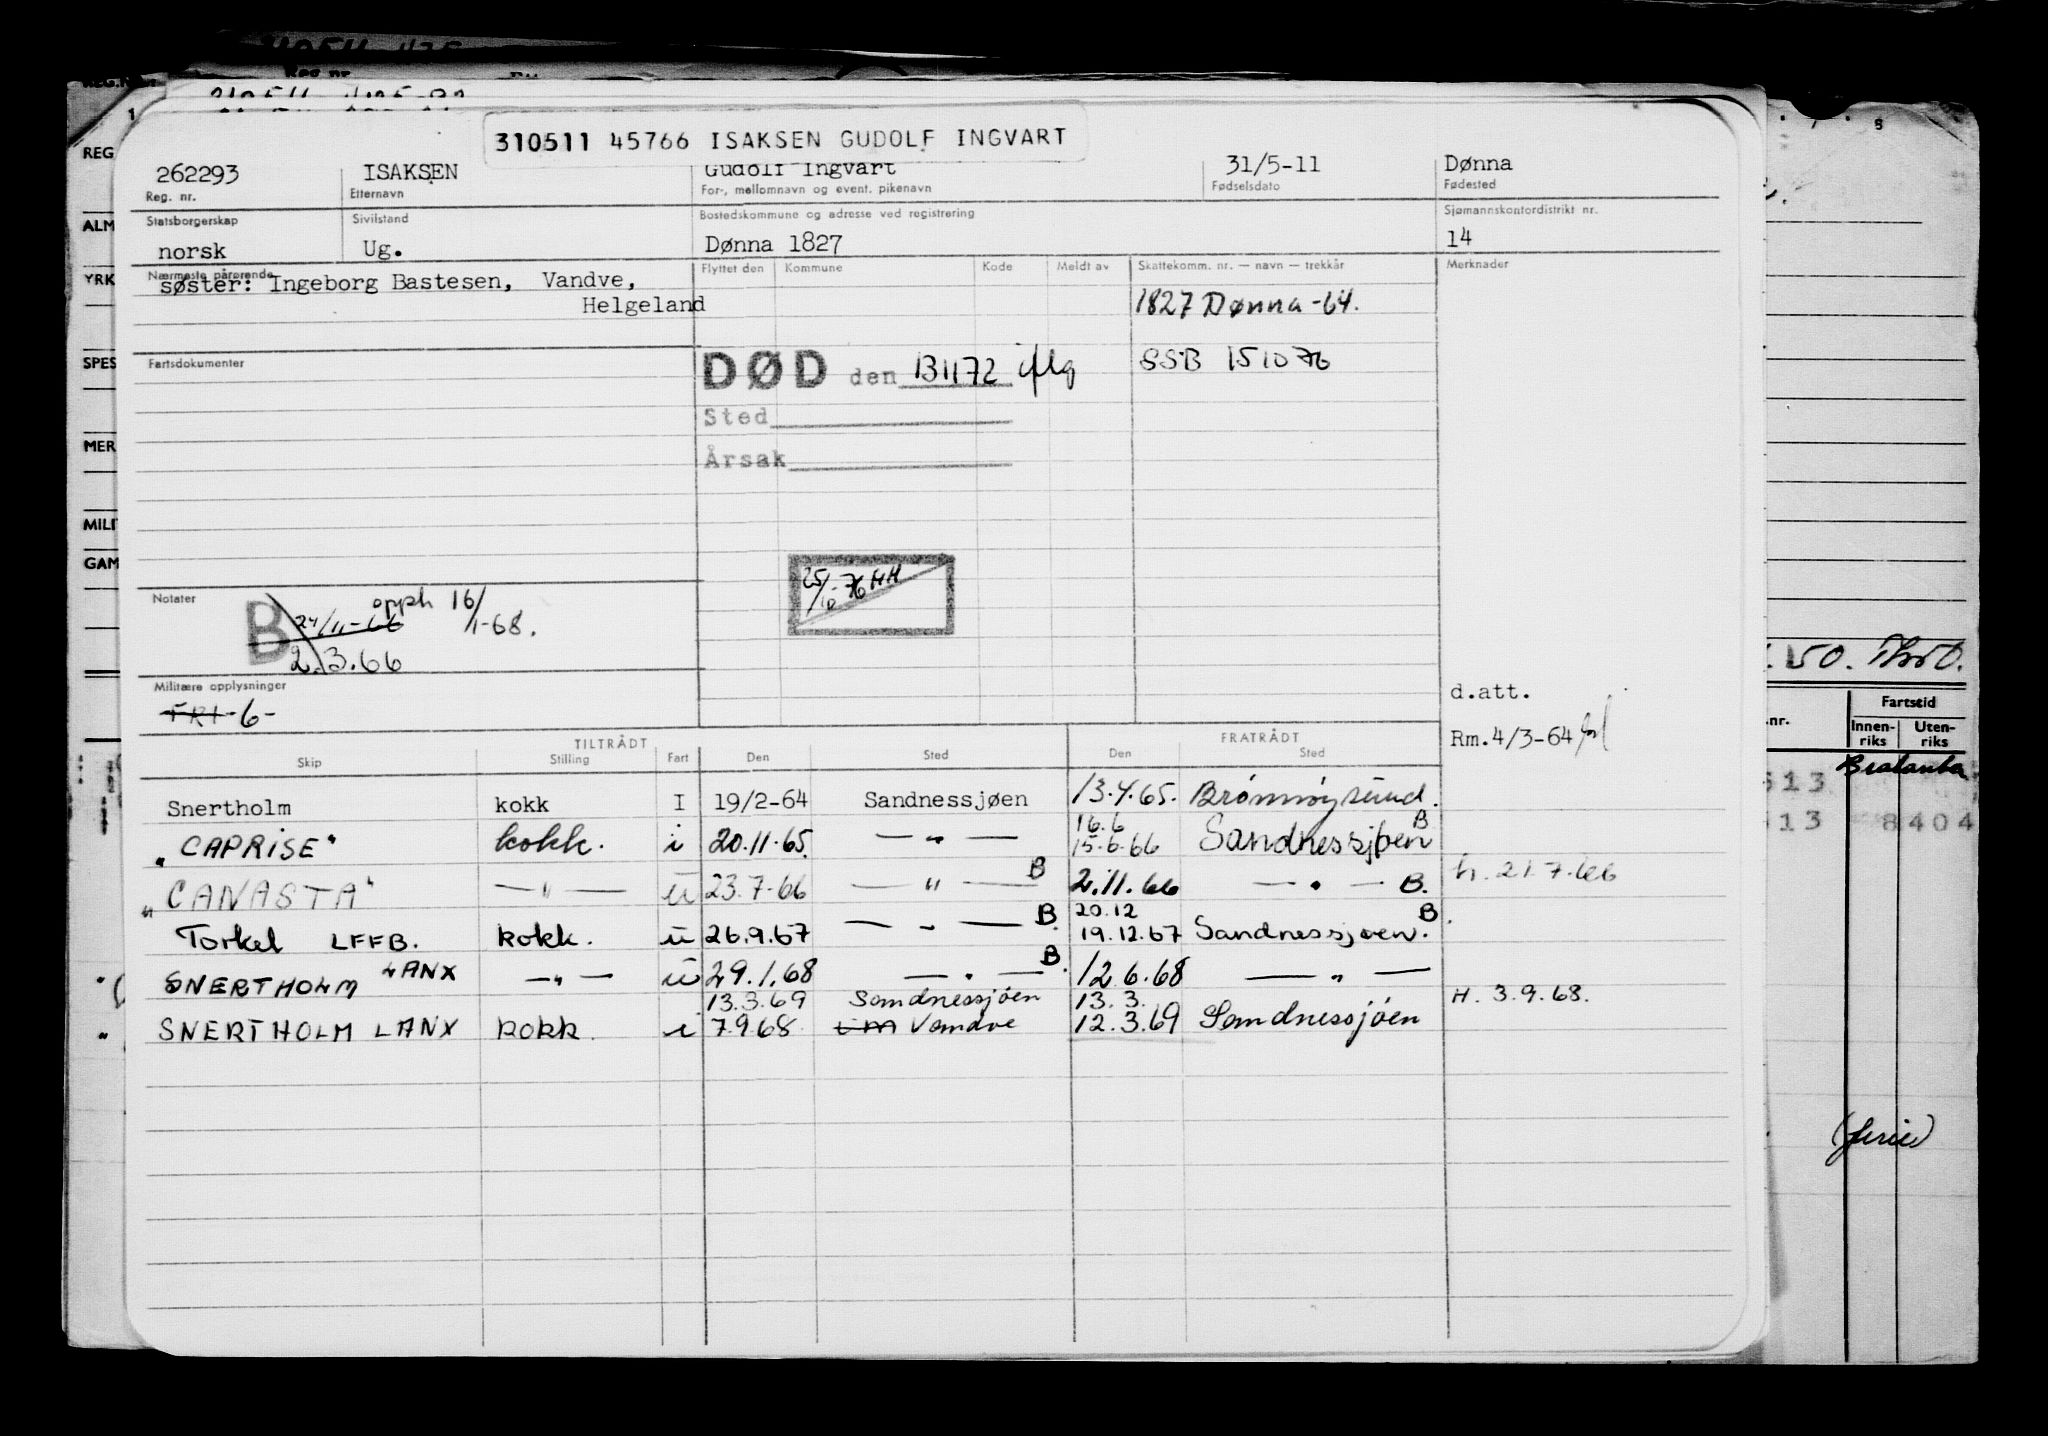 310511 45766 ISAKSEN GUDOLF INGVART
262293 ISAKSEN Gudolf Ingvart 31/5-11 Dønna
Reg. nr. Etternavn For-, mellomnavn og event. pikenavn Fødselsdato Fødested
Statsborgerskap Sivilstand Bostedskommune og adresse ved registrering Sjømannskontordistrikt nr.
norsk Ug. Dønna 1827 14
Nærmeste pårørende Flyttet den Kommune Kode Meldt av Skattekomm. nr. — navn — trekkår Merknader
søster: Ingeborg Bastesen, Vandve,
Helgeland
1827 Dønna -64.
Fartsdokumenter
DØD den 131172 iflg SSB 151076
Sted
Årsak
25/10-76 HH
Notater
B 24/11-66 opph 16/1-68.
2.3.66
Militære opplysninger
FRI -6-
d.att.
Rm.4/3-64
TILTRÅDT FRATRÅDT
Skip Stilling Fart Den Sted Den Sted
Snertholm kokk I 19/2-64 Sandnessjøen 13.4.65. Brønnøysund.
16.6 B
"CAPRISE" kokk. i 20.11.65. — " — 15.6.66 Sandnessjøen
"CANASTA" — " — u 23.7-66 — " — B 2.11.66 — " — B. h. 21.7.66
20.12 B
Torkel LFFB. kokk. u 26.9.67 — " — B. 19.12.67 Sandnessjøen.
SNERTHOLM LANX — " — u 29.1.68 — " — B. 12.6.68 — " —
13.3.69 Sandnessjøen 13.3. H. 3.9.68.
SNERTHOLM LANX kokk. i 7.9.68 Vandve 12.3.69 Sandnessjøen
Reg nr
REG
ALM
YRK
SPES
MER
MILI
GAM
.nr. Fartstid
Innen-riks Uten-riks
513
413 8404
(ferie)